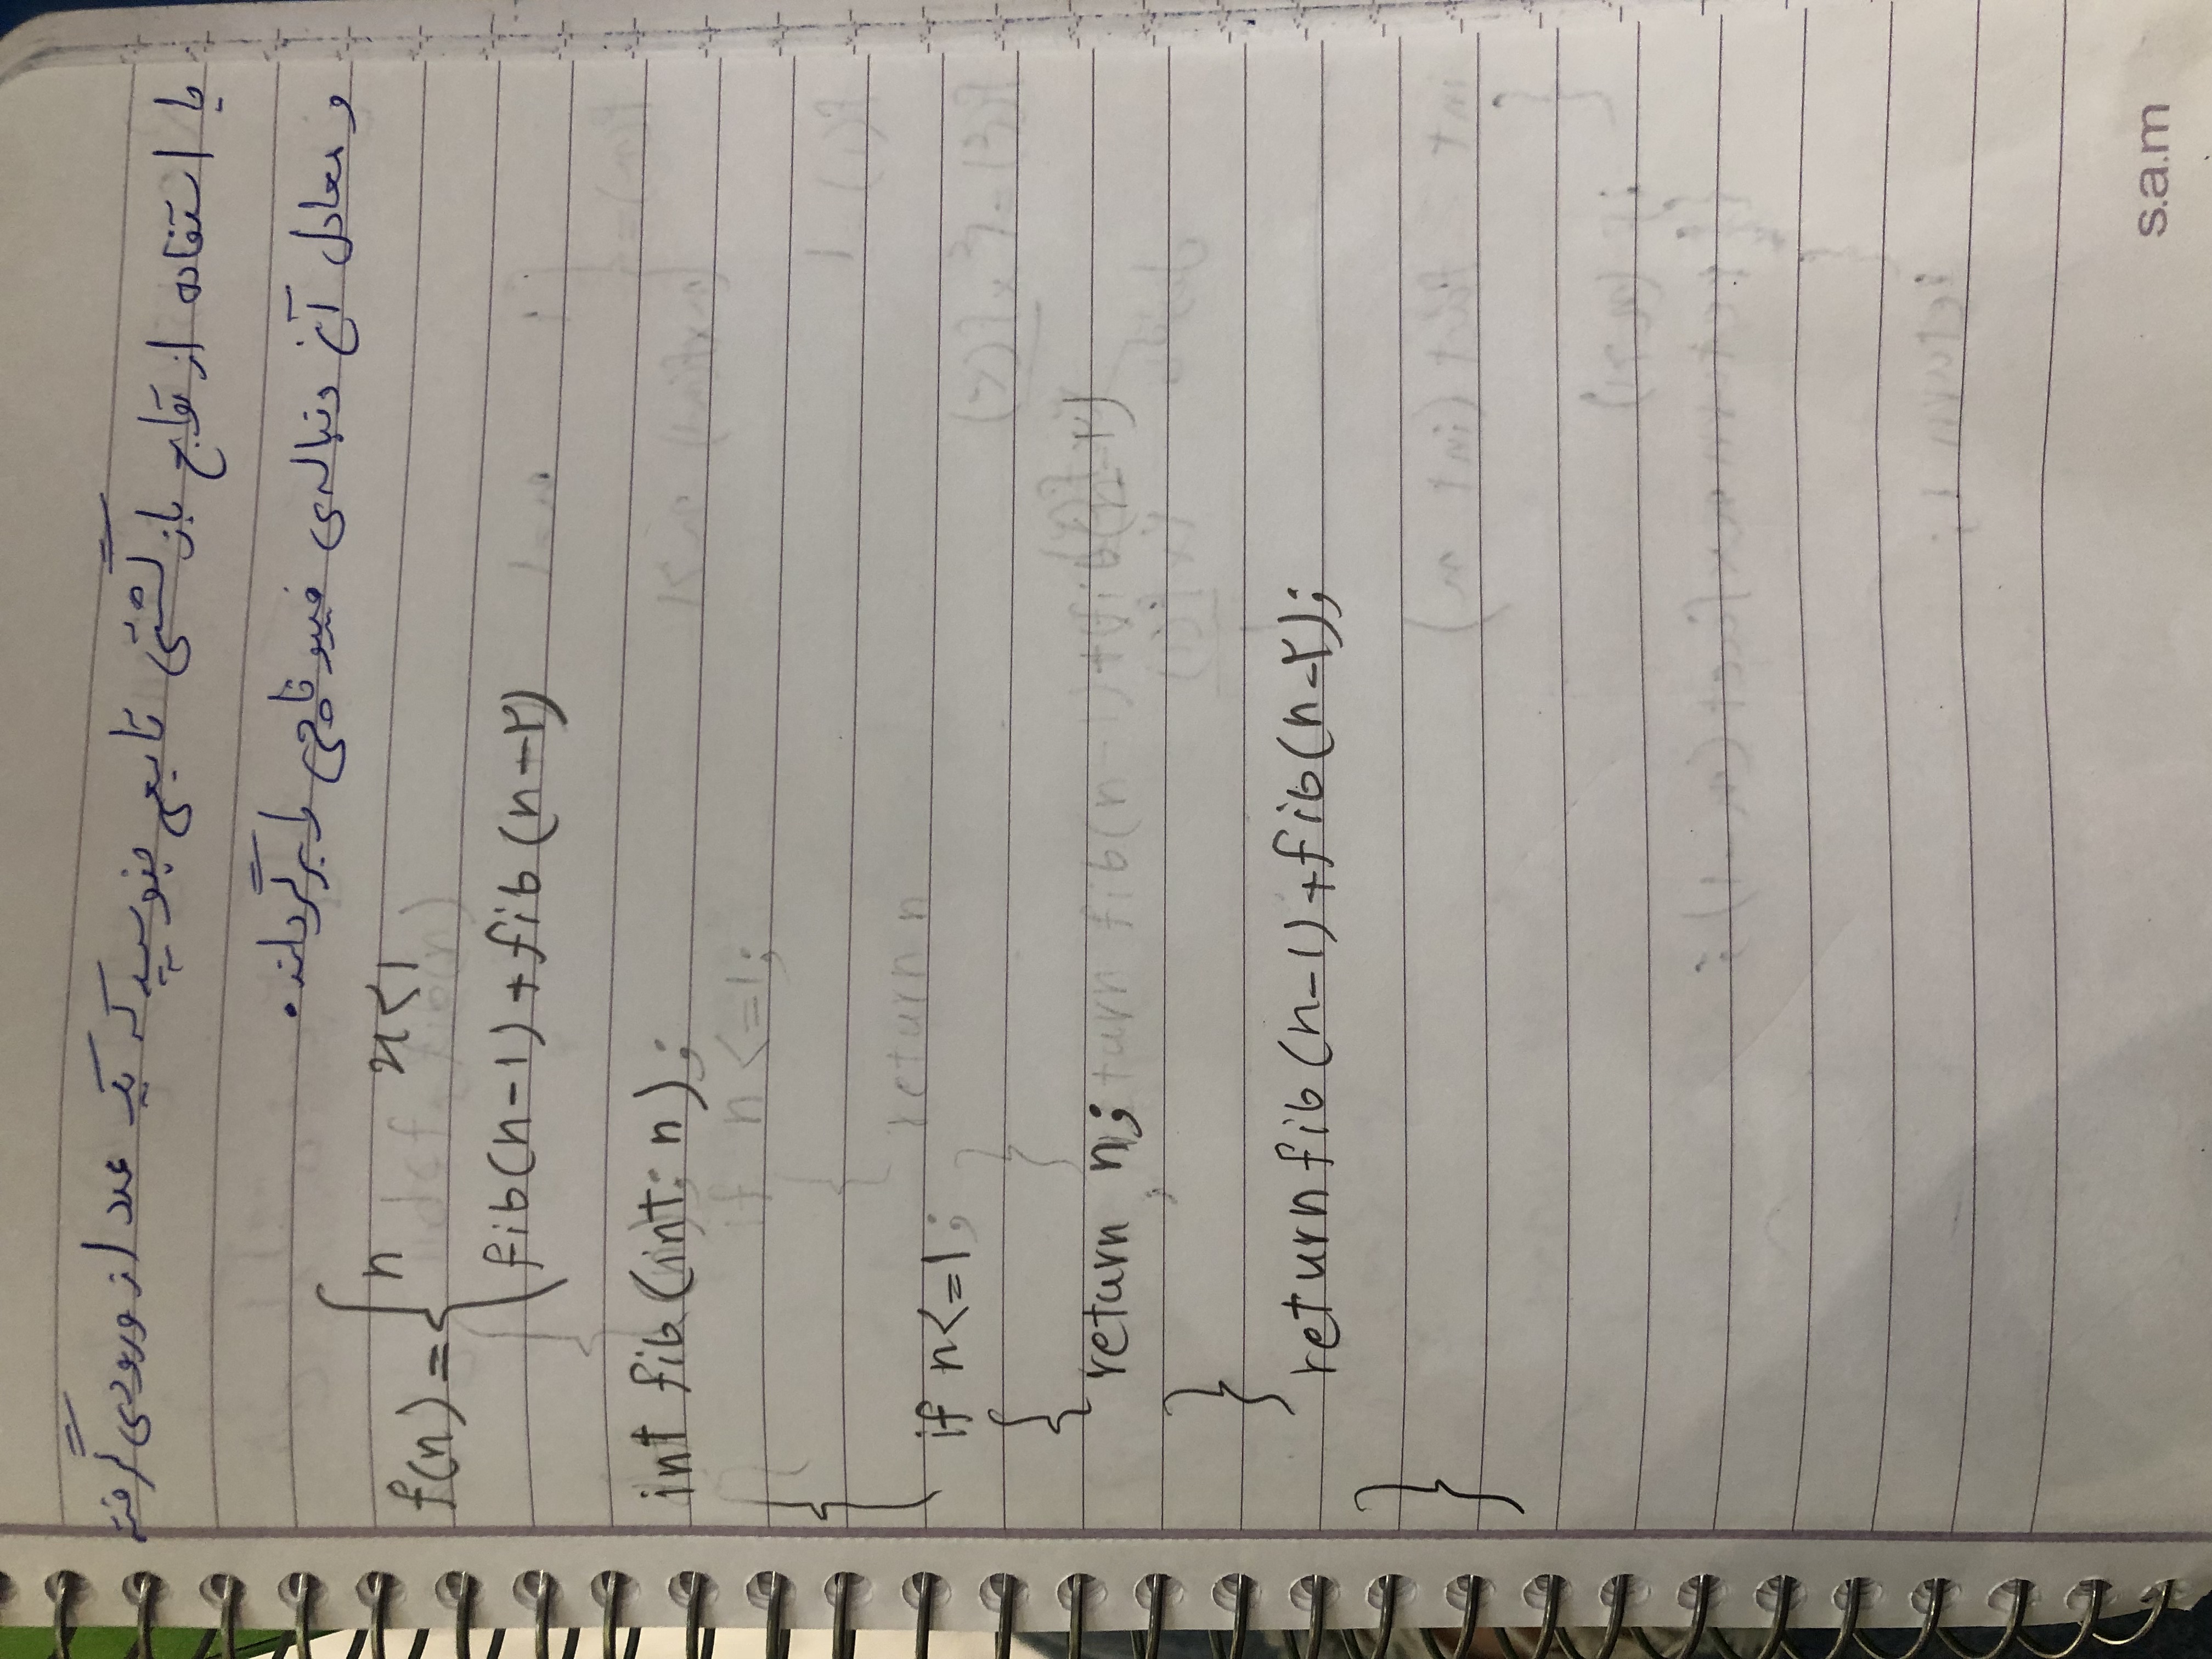 با استفاده از توابع بازگشتی تابعی بنویسید که یک عدد از ورودی گرفته
و معادل آن دنباله‌ی فیبوناچی را برگرداند.
f(n) = { n    n<1
fib(n-1)+fib(n-۲)
int fib(int n);
{
if n<=1;
{
return n;
}
return fib(n-1)+fib(n-۲);
}
s.a.m